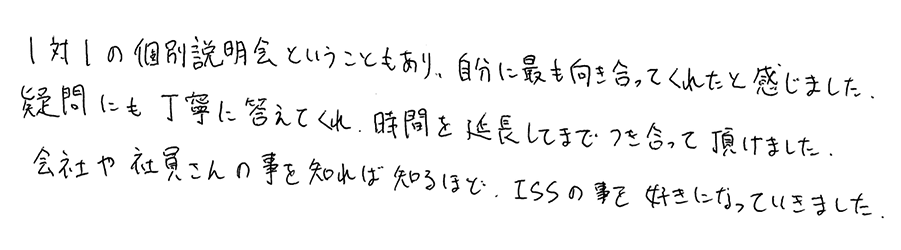 1対1の個別説明会ということもあり、自分に最も向き合ってくれたと感じました.
疑問にも丁寧に答えてくれ.時間を延長してまでつき合って頂けました.
会社や社員さんの事を知れば知るほど.ISSの事を好きになっていきました.